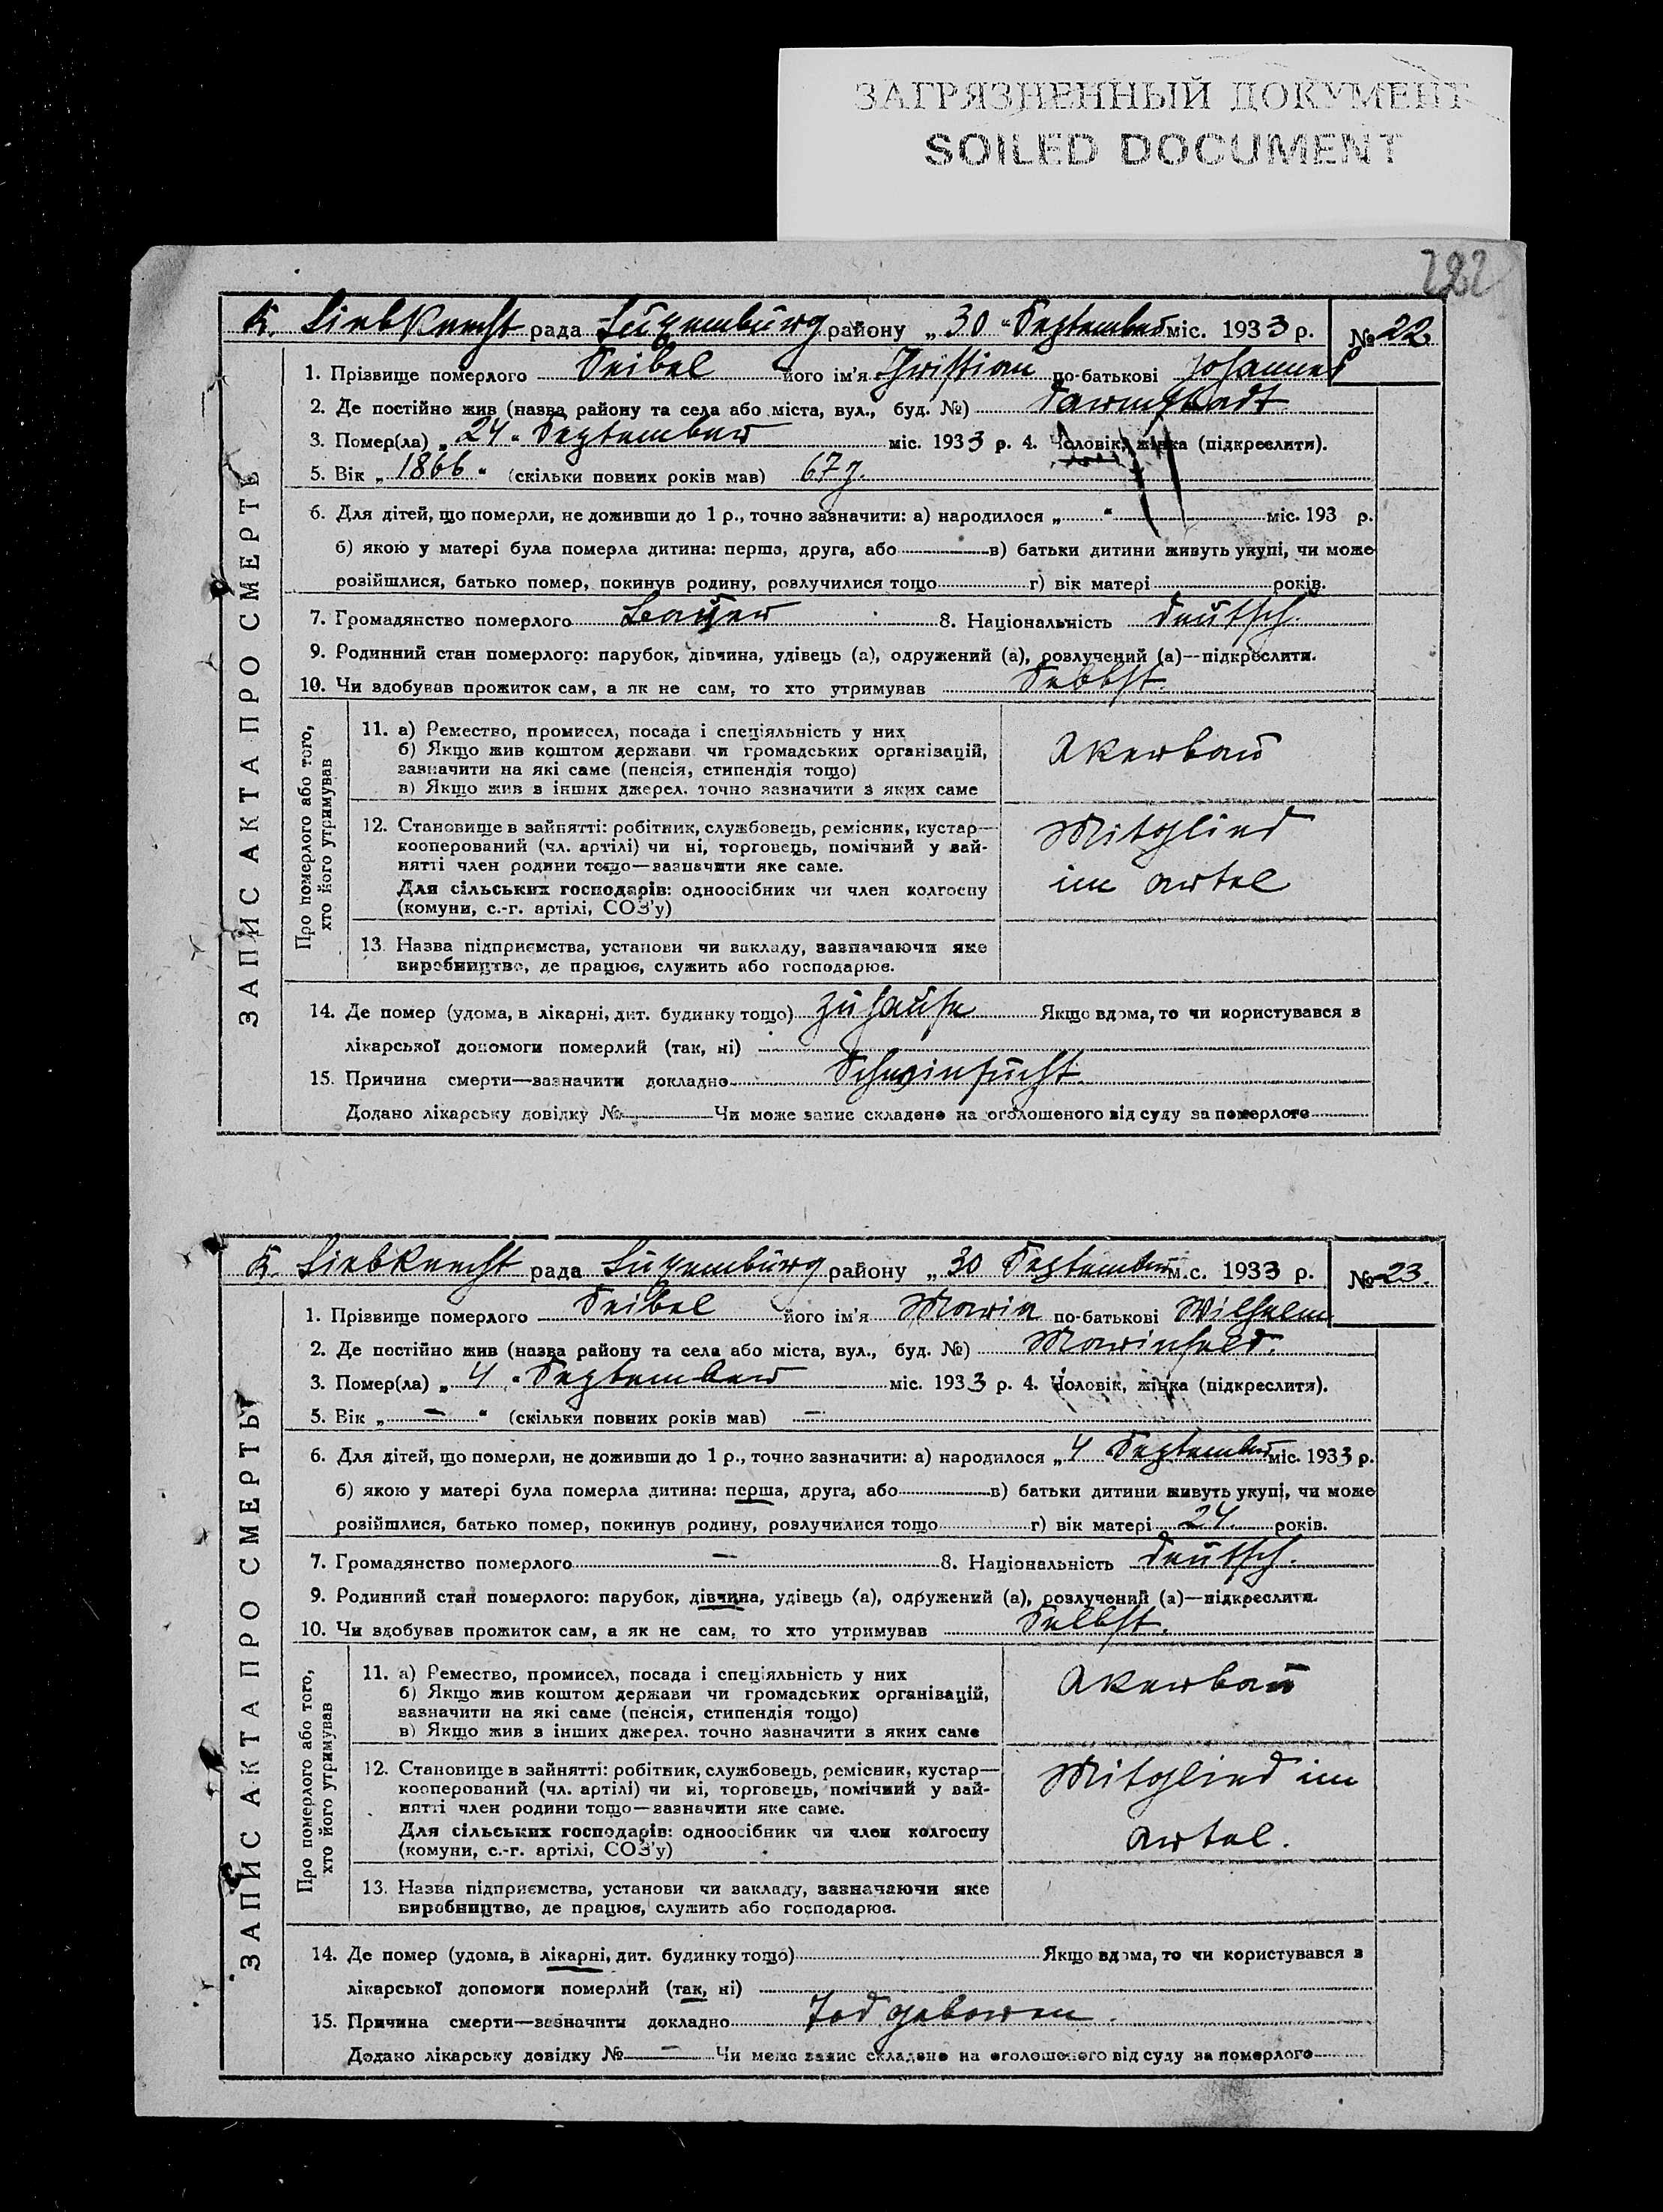 ЗАГРЯЗНЕННЫЙ ДОКУМЕНТ
SOILED DOCUMENT
222
К. Liebknecht рада Luxemburg району „30“ September міс. 1933 р. № 22
ЗАПИС АКТА ПРО СМЕРТЬ
1. Прізвище померлого Seibel його ім'я Christian по-батькові Johannes
2. Де постійно жив (назва району та села або міста, вул., буд. №) Darmstadt
3. Помер(ла) „24“ September міс. 1933 р. 4. Чоловік, жінка (підкреслити).
5. Вік „1866“ (скільки повних років мав) 67 J.
6. Для дітей, що померли, не доживши до 1 р., точно зазначити: а) народилося „ “ міс. 193 р.
б) якою у матері була померла дитина: перша, друга, або в) батьки дитини живуть укупі, чи може
розійшлися, батько помер, покинув родину, розлучилися тощо г) вік матері років.
7. Громадянство померлого Bauer 8. Національність deutsch.
9. Родинний стан померлого: парубок, дівчина, удівець (а), одружений (а), розлучений (а)—підкреслити.
10. Чи здобував прожиток сам, а як не сам, то хто утримував Selbst.
Про померлого або того, хто його утримував
11. а) Ремество, промисел, посада і спеціяльність у них
б) Якщо жив коштом держави чи громадських організацій,
зазначити на які саме (пенсія, стипендія тощо)
в) Якщо жив з інших джерел, точно зазначити з яких саме
Akerbau
12. Становище в зайнятті: робітник, службовець, ремісник, кустар—
кооперований (чл. артілі) чи ні, торговець, помічний у зай-
нятті член родини тощо—зазначити яке саме.
Для сільських господарів: одноосібник чи член колгоспу
(комуни, с.-г. артілі, СОЗ'у)
Mitglied
im Artel
13. Назва підприємства, установи чи закладу, зазначаючи яке
виробництво, де працює, служить або господарює.
14. Де помер (удома, в лікарні, дит. будинку тощо) zu hause Якщо вдома, то чи користувався з
лікарської допомоги померлий (так, ні)
15. Причина смерти—зазначити докладно Schwinsucht
Додано лікарську довідку № Чи може запис складено на оголошеного від суду за померлого
К. Liebknecht рада Luxemburg району „30 September міс. 1933 р. № 23.
ЗАПИС АКТА ПРО СМЕРТЬ
1. Прізвище померлого Seibel його ім'я Maria по-батькові Wilhelm
2. Де постійно жив (назва району та села або міста, вул., буд. №) Marinfeld.
3. Помер(ла) „4“ September міс. 1933 р. 4. Чоловік, жінка (підкреслити).
5. Вік „ — “ (скільки повних років мав) —
6. Для дітей, що померли, не доживши до 1 р., точно зазначити: а) народилося „4 September міс. 1933 р.
б) якою у матері була померла дитина: перша, друга, або в) батьки дитини живуть укупі, чи може
розійшлися, батько помер, покинув родину, розлучилися тощо г) вік матері 24 років.
7. Громадянство померлого — 8. Національність deutsch.
9. Родинний стан померлого: парубок, дівчина, удівець (а), одружений (а), розлучений (а)—підкреслити.
10. Чи здобував прожиток сам, а як не сам, то хто утримував Selbst.
Про померлого або того, хто його утримував
11. а) Ремество, промисел, посада і спеціяльність у них
б) Якщо жив коштом держави чи громадських організацій,
зазначити на які саме (пенсія, стипендія тощо)
в) Якщо жив з інших джерел, точно зазначити з яких саме
Akerbau
12. Становище в зайнятті: робітник, службовець, ремісник, кустар—
кооперований (чл. артілі) чи ні, торговець, помічний у зай-
нятті член родини тощо—зазначити яке саме.
Для сільських господарів: одноосібник чи член колгоспу
(комуни, с.-г. артілі, СОЗ'у)
Mitglied im
Artel.
13. Назва підприємства, установи чи закладу, зазначаючи яке
виробництво, де працює, служить або господарює.
14. Де помер (удома, в лікарні, дит. будинку тощо) Якщо вдома, то чи користувався з
лікарської допомоги померлий (так, ні)
15. Причина смерти—зазначити докладно Tod geboren.
Додано лікарську довідку № — Чи може запис складено на оголошеного від суду за померлого